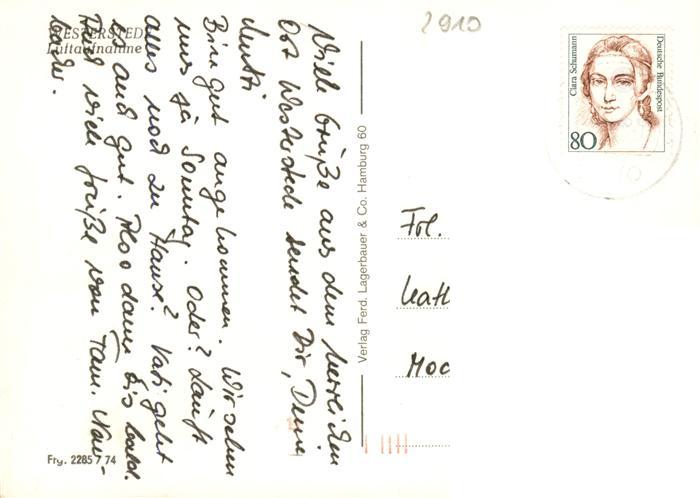 WESTERSTEDE
Luftaufnahme
2910
Clara Schumann
Deutsche Bundespost
80
Viele Grüße aus dem herrlichen
Ort Westerstede sendet Dir, Deine
Bin gut angekommen. Wir sehen
uns ja Sonntag. Oder? Läuft
alles noch zu Hause? Vati geht
es auch gut. Also dann bis bald.
Und viele Grüße von Fam.
Verlag Ferd. Lagerbauer & Co. Hamburg 60
Frl.
Kath
Moc
Frg. 2285 7 74